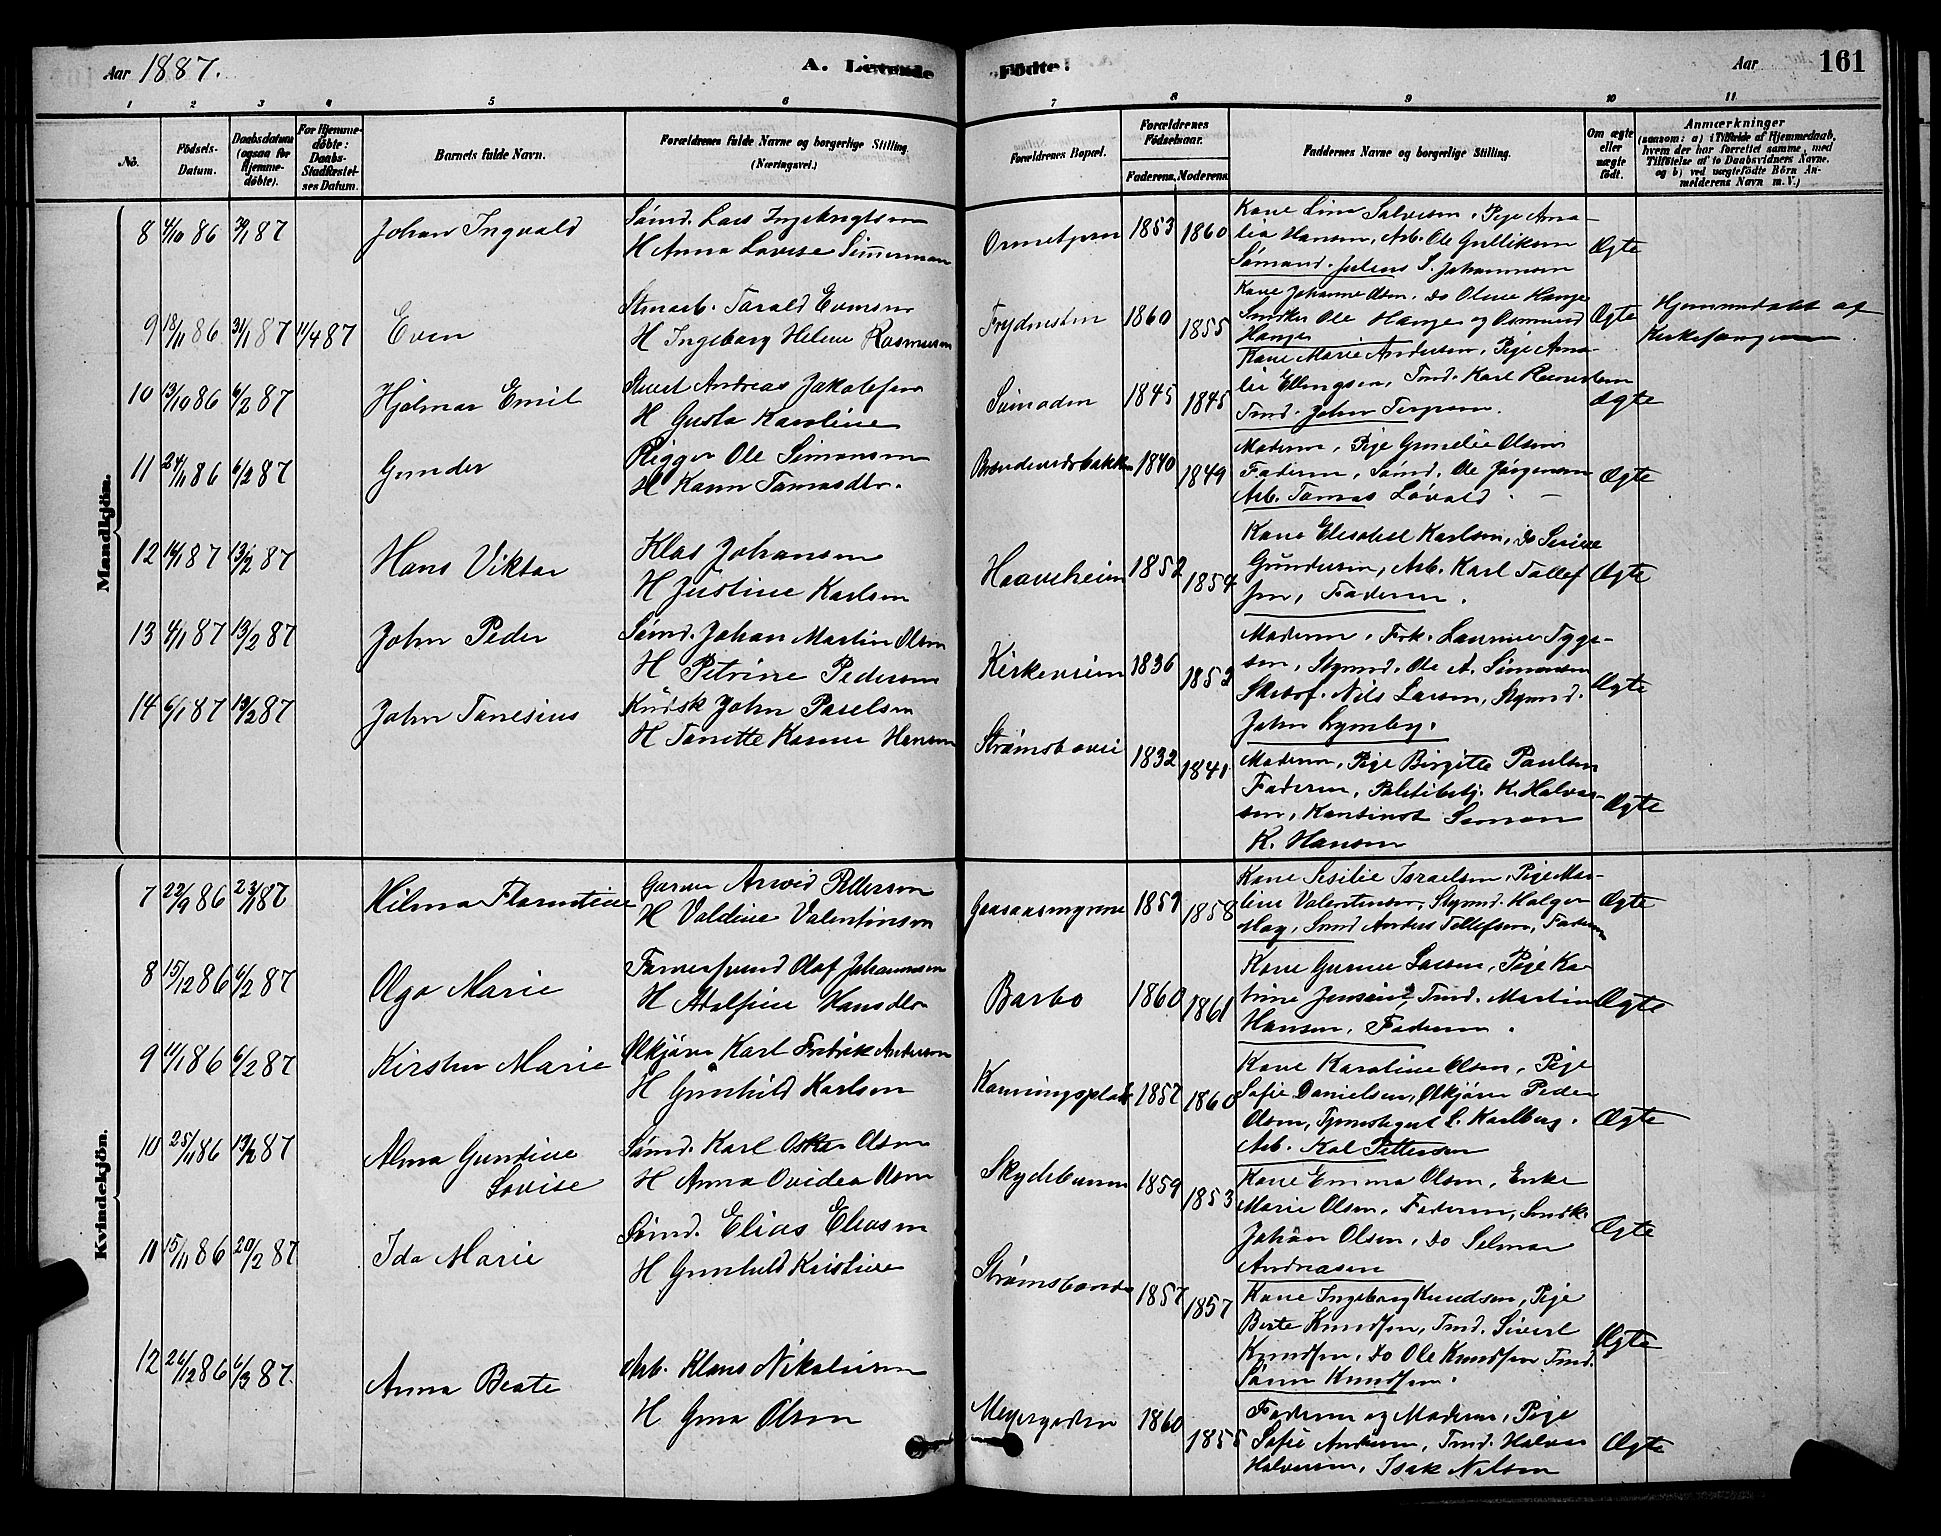 Aar 1887. A. Levende Födte. Aar 161
1 2 3 4 5 6 7 8 9 10 11
No.
Födsels-Datum.
Daabsdatum (ogsaa for Hjemme-döbte).
For Hjemme-döbte: Daabs-Stadfæstel-ses Datum.
Barnets fulde Navn.
Forældrenes fulde Navne og borgerlige Stilling. (Næringsvei.)
Forældrenes Bopæl.
Forældrenes Födselsaar.
Faderens. Moderens.
Faddernes Navne og borgerlige Stilling.
Om ægte eller uægte födt.
Anmærkninger
(saasom: a) i Tilfælde af Hjemmedaab,
hvem der har forrettet samme, med
Tilföielse af to Daabsvidners Navne.
og b) ved uægtefödte Börn An-
melderens Navn m. V.)
Mandkjön.
8 4/10 86 87 Johan Ingvald
Sømd. Lars Ingebrigtsen
H Anna Lovise Simerman
1853 1860
Kone Lina Salvesen, Pige Ama-
lia Hansen, Arb. Ole Gulliksen
Sømand. Julius S. Johannesen
Ægte
9 18/11 86 31/1 87 11/4 87 Even
Stenarb. Tarald Evensen
H Ingeborg Helene Rasmusen
Frydensten 1860 1855
Kone Johanne Olsen, do Oline Hange
Snedker Ole Hange og Osmund
Hange
Ægte
Hjemmedøbt af
Kirkesangeren.
10 13/10 86 6/2 87 Hjalmar Emil
Andreas Jakobsen
H Gusta Karoline
1845 1845
Kone Marie Andersen, Pige Ama-
lie Ellingsen, Tmd. Karl
Tmd. John Terjesen.
Ægte
11 24/11 86 6/2 87 Gunder
Rigger Ole Simonsen
H Karen Tomasdtr.
1840 1849
Moderen, Pige Gunelie Olsen
Faderen, Sømd. Ole Jørgensen
Arb. Tomas Løvald
Ægte
12 14/1 87 13/2 87 Hans Viktor
Klas Johansen
H Justine Karlsen
Haaveheien 1852 1854
Kone Elisabet Karlsen, do Serine
Gundersen, Arb. Karl Tollef
sen, Faderen.
Ægte
13 4/1 87 13/2 87 John Peder
Sømd. Johan Martin Olsen
H Petrine Pedersen
Kirkeveien 1836 1853
Moderen, Frk. Laurine Tyge-
sen, Styrmd. Ole A. Simonsen
Skibsf. Nils Larsen, Styrmd.
John Lyneby.
Ægte
14 6/1 87 13/2 87 John Tanesius
John Paulsen
H Tanette Karine Hansen
1832 1841
Moderen, Pige Birgitte Paulsen
Faderen, Politibetj. H. Halvor-
sen, Simon
K. Hansen
Ægte
Kvindekjön.
7 22/9 86 23/1 87 Hilma Florentine
Garver Arvid Pettersen
H Valdine Valentinsen
1859 1858
Kone Sesilie Israelsen, Pige Ma-
line Valentinsen, Styrmd. Holger
May, Smd Anders Tellefsen, Faderen
Ægte
8 15/12 86 6/2 87 Olga Marie
Olaf Johannesen
H Adolfine Hansdtr
Barbo 1860 1861
Kone Gurine Larsen, Pige Ka
trine Jensen, Tmd. Martin
Hansen, Faderen.
Ægte
9 11/1 86 6/2 87 Kirsten Marie
Ølkjører Karl Fredrik Andersen
H Gunhild Karlsen
1857 1860
Kone Karoline Olsen, Pige
Sofie Danielsen, Ølkjører Peder
Olsen, L. Karlberg.
Arb. Kal Pettersen
Ægte
10 25/11 86 13/2 87 Alma Gundine
Lovise
Sømd. Karl Oskar Olsen
H Anna Ovidea Olsen
Skydebanen 1859 1853
Kone Emma Olsen, Enke
Marie Olsen, Faderen, Snedk.
Johan Olsen, do Selmar
Andreasen
Ægte
11 15/11 86 20/2 87 Ida Marie
Sømd. Elias Eliasen
H Gunhild Kristine
1857 1857
Kone Ingeborg Knudsen, Pige
Berte Knudsen, Tmd. Sivert
Knudsen, do Ole Knudsen Tmd.
Søren Knudsen.
Ægte
12 26/12 86 6/3 87. Anna Beate
Arb. Klaus Nikolaisen
H Gina Olsen
Meyergaden 1860 1855
Faderen og Moderen, Pige
Sofie Andersen, Tmd. Halvor
Halvorsen, Isak Nilsen
Ægte